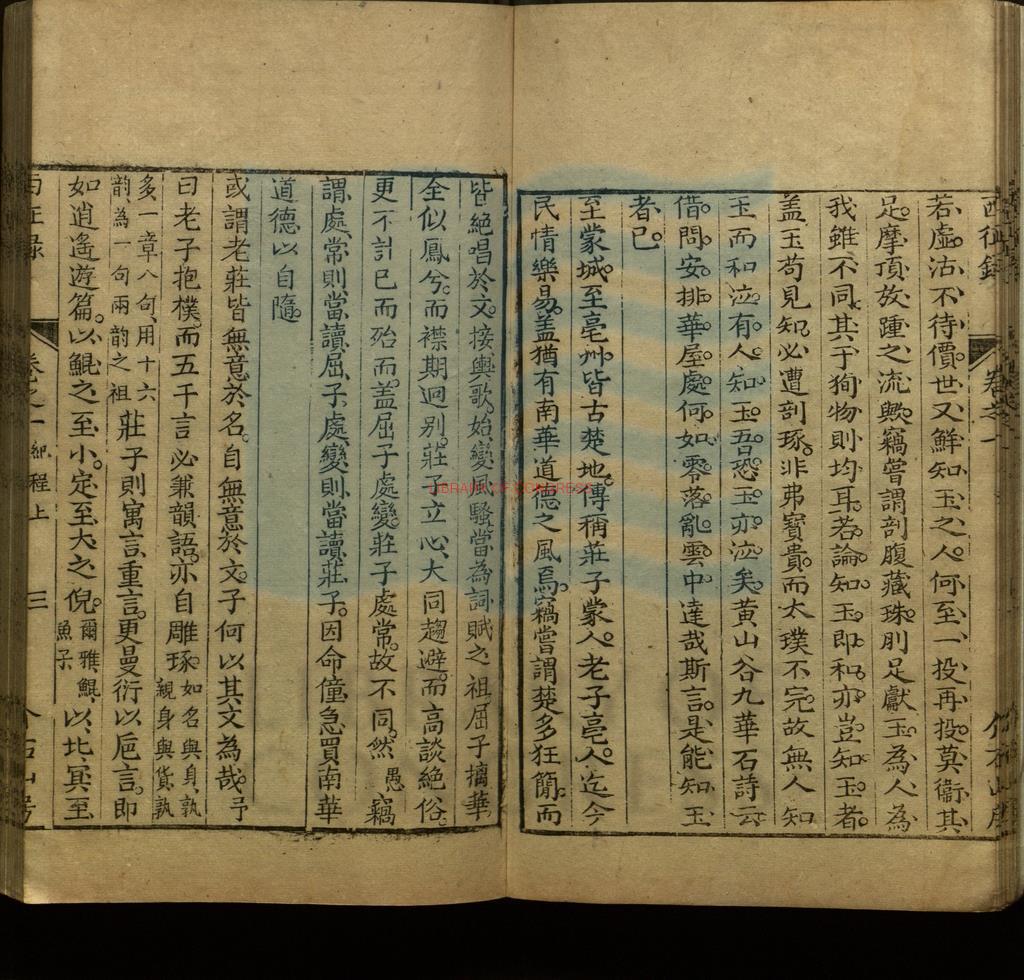 西征錄 卷之一 介石山房
若虛沽不待價世又鮮知玉之人何至一投再投莫衛其
足摩頂放踵之流歟竊嘗謂剖腹藏珠刖足獻玉為人為
我雖不同其于狥物則均耳若論知玉即和亦豈知玉者
盖玉苟見知必遭剖琢非弗寳貴而太璞不完故無人知
玉而和泣有人知玉吾恐玉亦泣矣黃山谷九華石詩云
借問安排華屋處何如零落亂雲中達哉斯言是能知玉
者已
至蒙城至亳州皆古楚地傳稱莊子蒙人老子亳人迄今
民情樂易盖猶有南華道德之風焉竊嘗謂楚多狂簡而
皆絕唱於文接輿歌始變風騷當為詞賦之祖屈子摛華
全似鳳兮而襟期迥别莊子立心大同趨避而高談絕俗
更不計已而殆而盖屈子處變莊子處常故不同然愚竊
謂處常則當讀屈子處變則當讀莊子因命僮急買南華
道德以自隨
或謂老莊皆無意於名自無意於文子何以其文為哉予
曰老子抱樸而五千言必兼韻語亦自雕琢如名與身孰親身與貨孰
多一章八句用十六韵為一句兩韵之祖莊子則寓言重言更曼衍以巵言即
如逍遙遊篇以鯤之至小定至大之倪爾雅鯤魚子以北冥至
西征錄 卷之一 紀程上 三 介石山房
LIBRARY OF CONGRESS